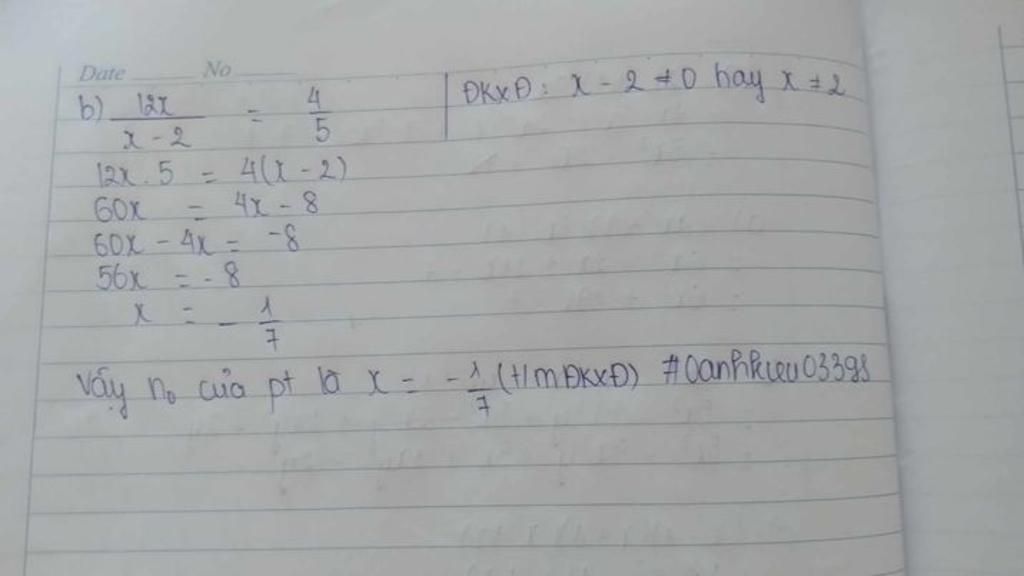 Date No
b) 12x/(x - 2) = 4/5 ĐKXĐ: x - 2 ≠ 0 hay x ≠ 2
12x . 5 = 4(x - 2)
60x = 4x - 8
60x - 4x = -8
56x = -8
x = -1/7
Vậy no của pt là x = -1/7 (t/m ĐKXĐ)